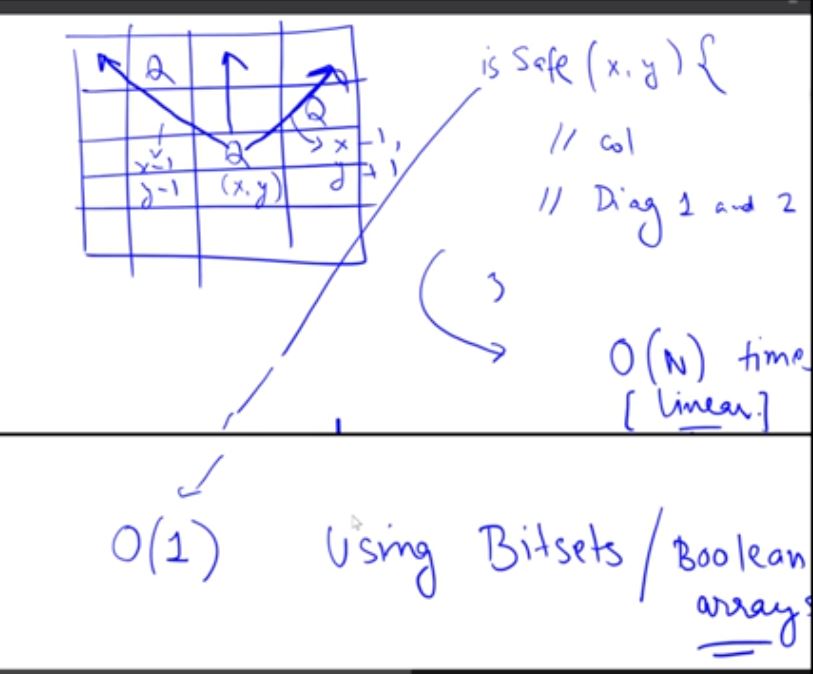 Q
Q
Q
x-1
y-1
(x,y)
x-1,
y+1
is Safe (x,y) {
// Col
// Diag 1 and 2
}
O(N) time
[Linear]
O(1) Using Bitsets / Boolean
arrays